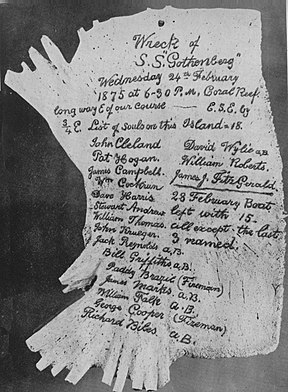 Wreck of
S.S. "Gothenberg"
Wednesday 24th February
1875 at 6-30 P.M, Coral Reef
long way E of our course — E.S.E. by
3/4 E. List of souls on this Island = 18.
John Cleland David Wylie a.B.
Pat Hogan. William Roberts.
James Campbell. James J. Fitz Gerald.
Wm Cochrun
Dave Harris 28 February Boat
Stewart Andrews left with 15.
William Thomas. all except the last
John Krueger. 3 named.
Jack Reynolds a.B.
Bill Griffiths a.B.
Paddy Brazil (Fireman)
James Marks. a.B.
William Falk a.B.
George Cooper (Fireman)
Richard Biles a.B.